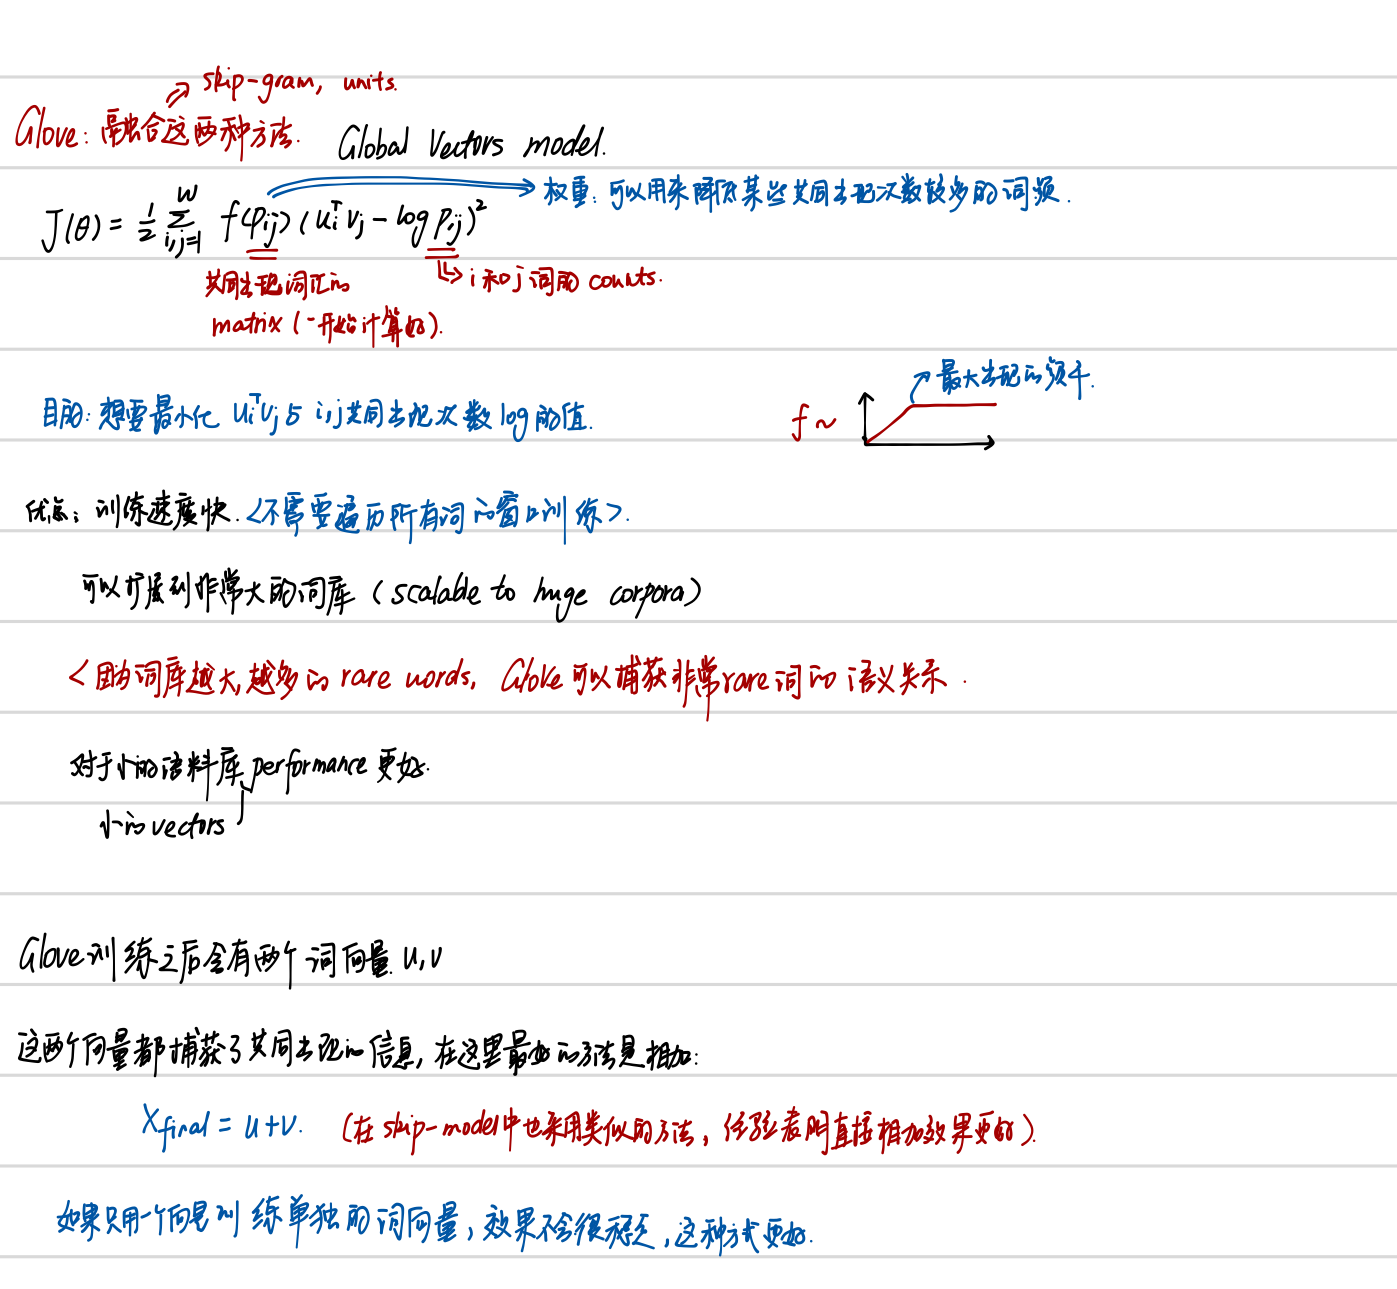 skip-gram, units.
Glove: 融合这两种方法. Global Vectors model.
权重: 可以用来降低某些共同出现次数较多的词频.
J(θ) = 1/2 Σ_{i,j=1}^{W} f(P_{ij}) (u_i^T v_j - log P_{ij})^2
共同出现词汇的 i和j词的 counts.
matrix (一开始计算好).
最大出现的频率.
目的: 想要最小化 u_i^T v_j 与 i,j共同出现次数log的值. f ~
优点: 训练速度快. <不需要遍历所有词的窗口训练>.
可以扩展到非常大的词库 (scalable to huge corpora)
<因为词库越大, 越多的 rare words, Glove 可以捕获非常rare词的语义关系.
对于小的语料库 performance 更好.
小的vectors
Glove训练之后会有两个词向量 u, v
这两个向量都捕获了共同出现的信息, 在这里最好的方法是相加:
X_final = u+v. (在 skip-model中也采用类似的方法, 经验表明直接相加效果更好).
如果只用一个向量训练单独的词向量, 效果不会很稳定, 这种方式更好.